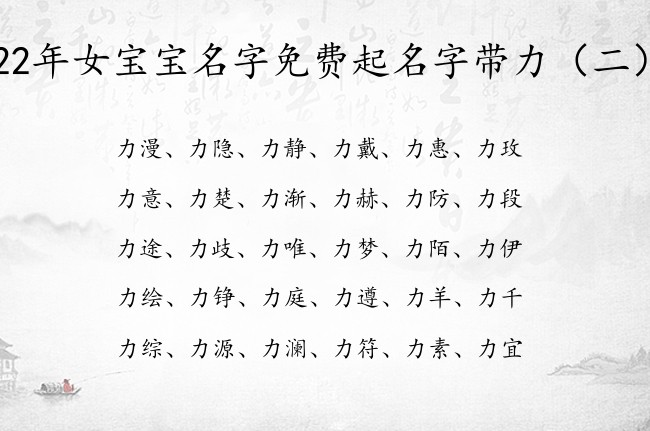 22年女宝宝名字免费起名字带力（二）
力漫、力隐、力静、力戴、力惠、力玫
力意、力楚、力渐、力赫、力防、力段
力途、力歧、力唯、力梦、力陌、力伊
力绘、力铮、力庭、力遵、力羊、力千
力综、力源、力澜、力符、力素、力宜